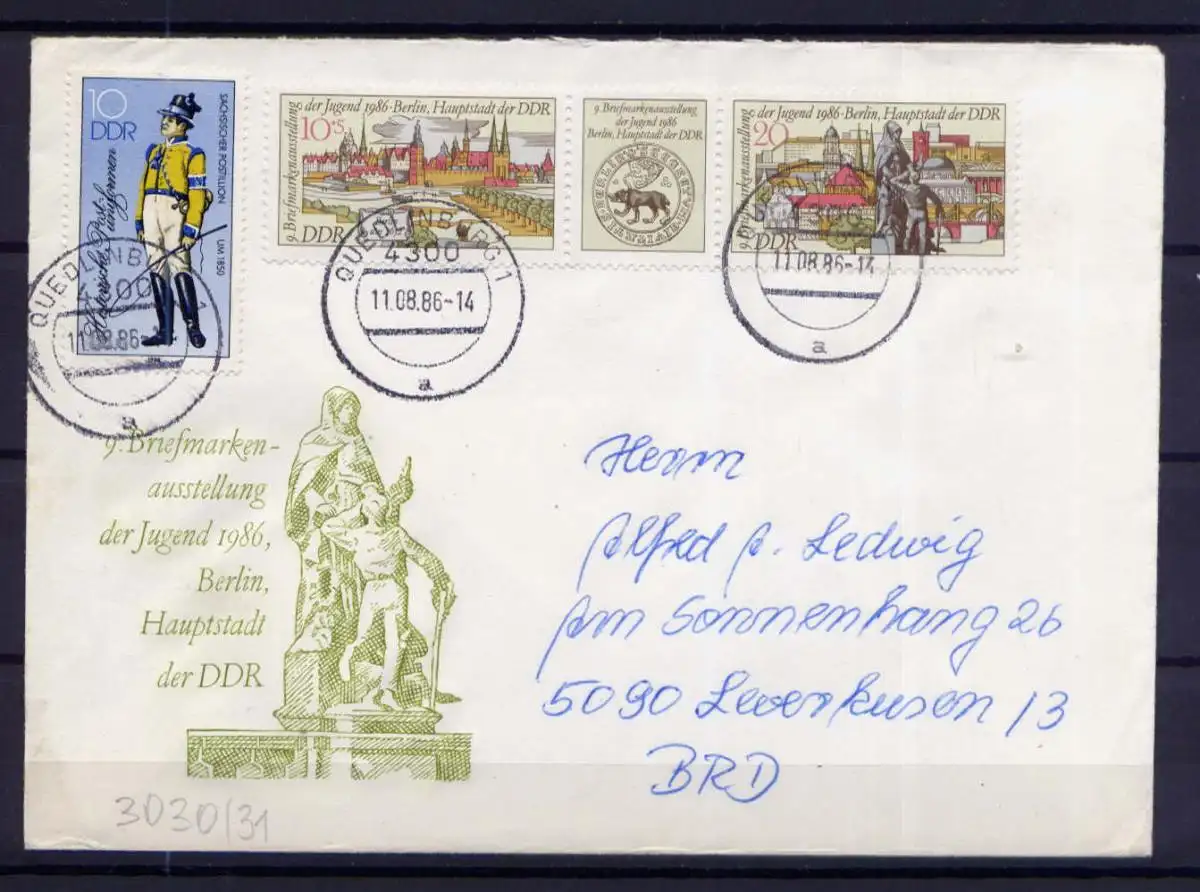 10
DDR
Historische Post-
uniformen
SÄCHSISCHER POSTILLION
UM 1850
9. Briefmarkenausstellung der Jugend 1986 · Berlin, Hauptstadt der DDR
10+5
DDR
9. Briefmarkenausstellung
der Jugend 1986
Berlin, Hauptstadt der DDR
9. Briefmarkenausstellung der Jugend 1986 · Berlin, Hauptstadt der DDR
20
DDR
QUEDLINBURG 1
4300
11.08.86-14
a
QUEDLINBURG 1
4300
11.08.86-14
a
11.08.86-14
a
9. Briefmarken-
ausstellung
der Jugend 1986,
Berlin,
Hauptstadt
der DDR
Herrn
Alfred A. Ledwig
Am Sonnenhang 26
5090 Leverkusen 13
BRD
3030/31